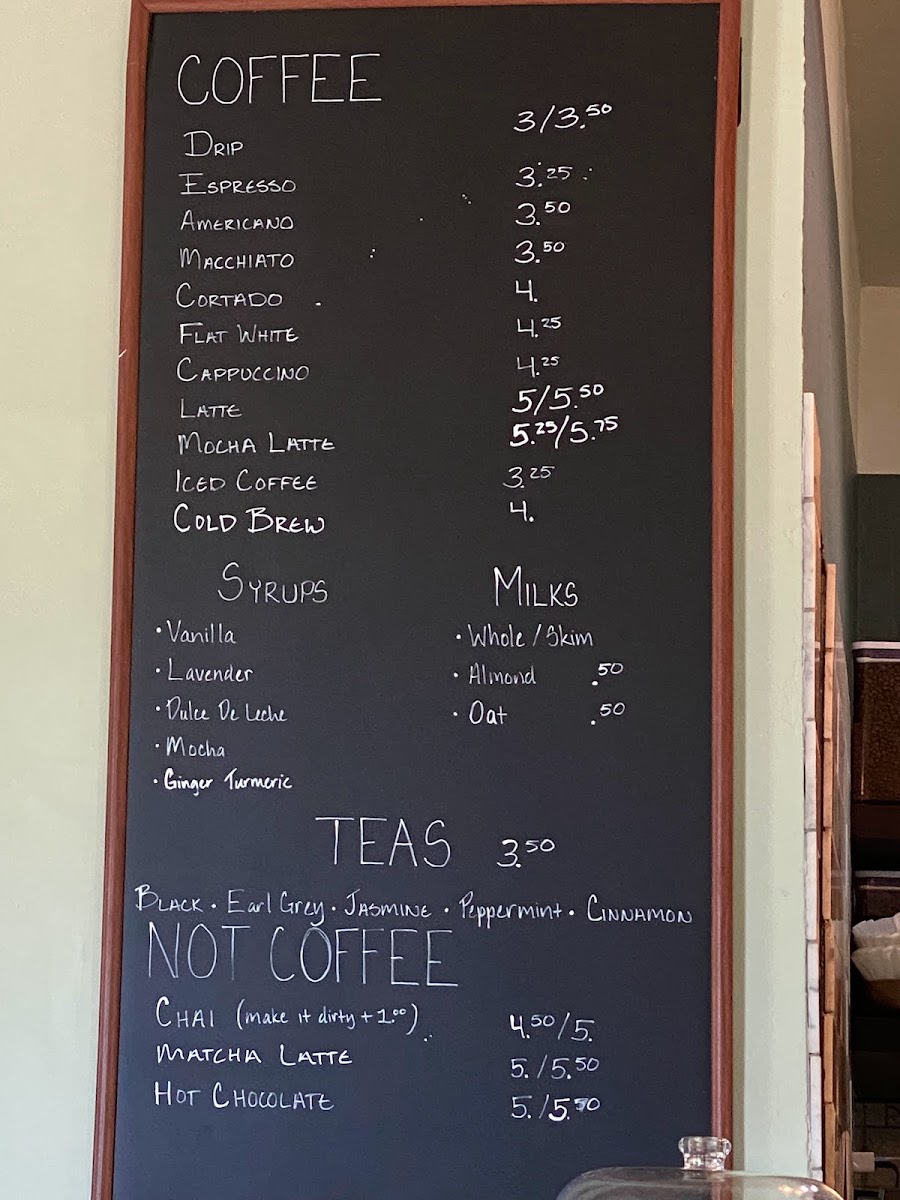 COFFEE
DRIP 3/3.50
ESPRESSO 3.25
AMERICANO 3.50
MACCHIATO 3.50
CORTADO 4.
FLAT WHITE 4.25
CAPPUCCINO 4.25
LATTE 5/5.50
MOCHA LATTE 5.25/5.75
ICED COFFEE 3.25
COLD BREW 4.
SYRUPS MILKS
• Vanilla • Whole / Skim
• Lavender • Almond .50
• Dulce De Leche • Oat .50
• Mocha
• Ginger Turmeric
TEAS 3.50
BLACK • Earl Grey • JASMINE • Peppermint • CINNAMON
NOT COFFEE
CHAI (make it dirty + 1.00) 4.50/5.
MATCHA LATTE 5./5.50
HOT CHOCOLATE 5./5.50